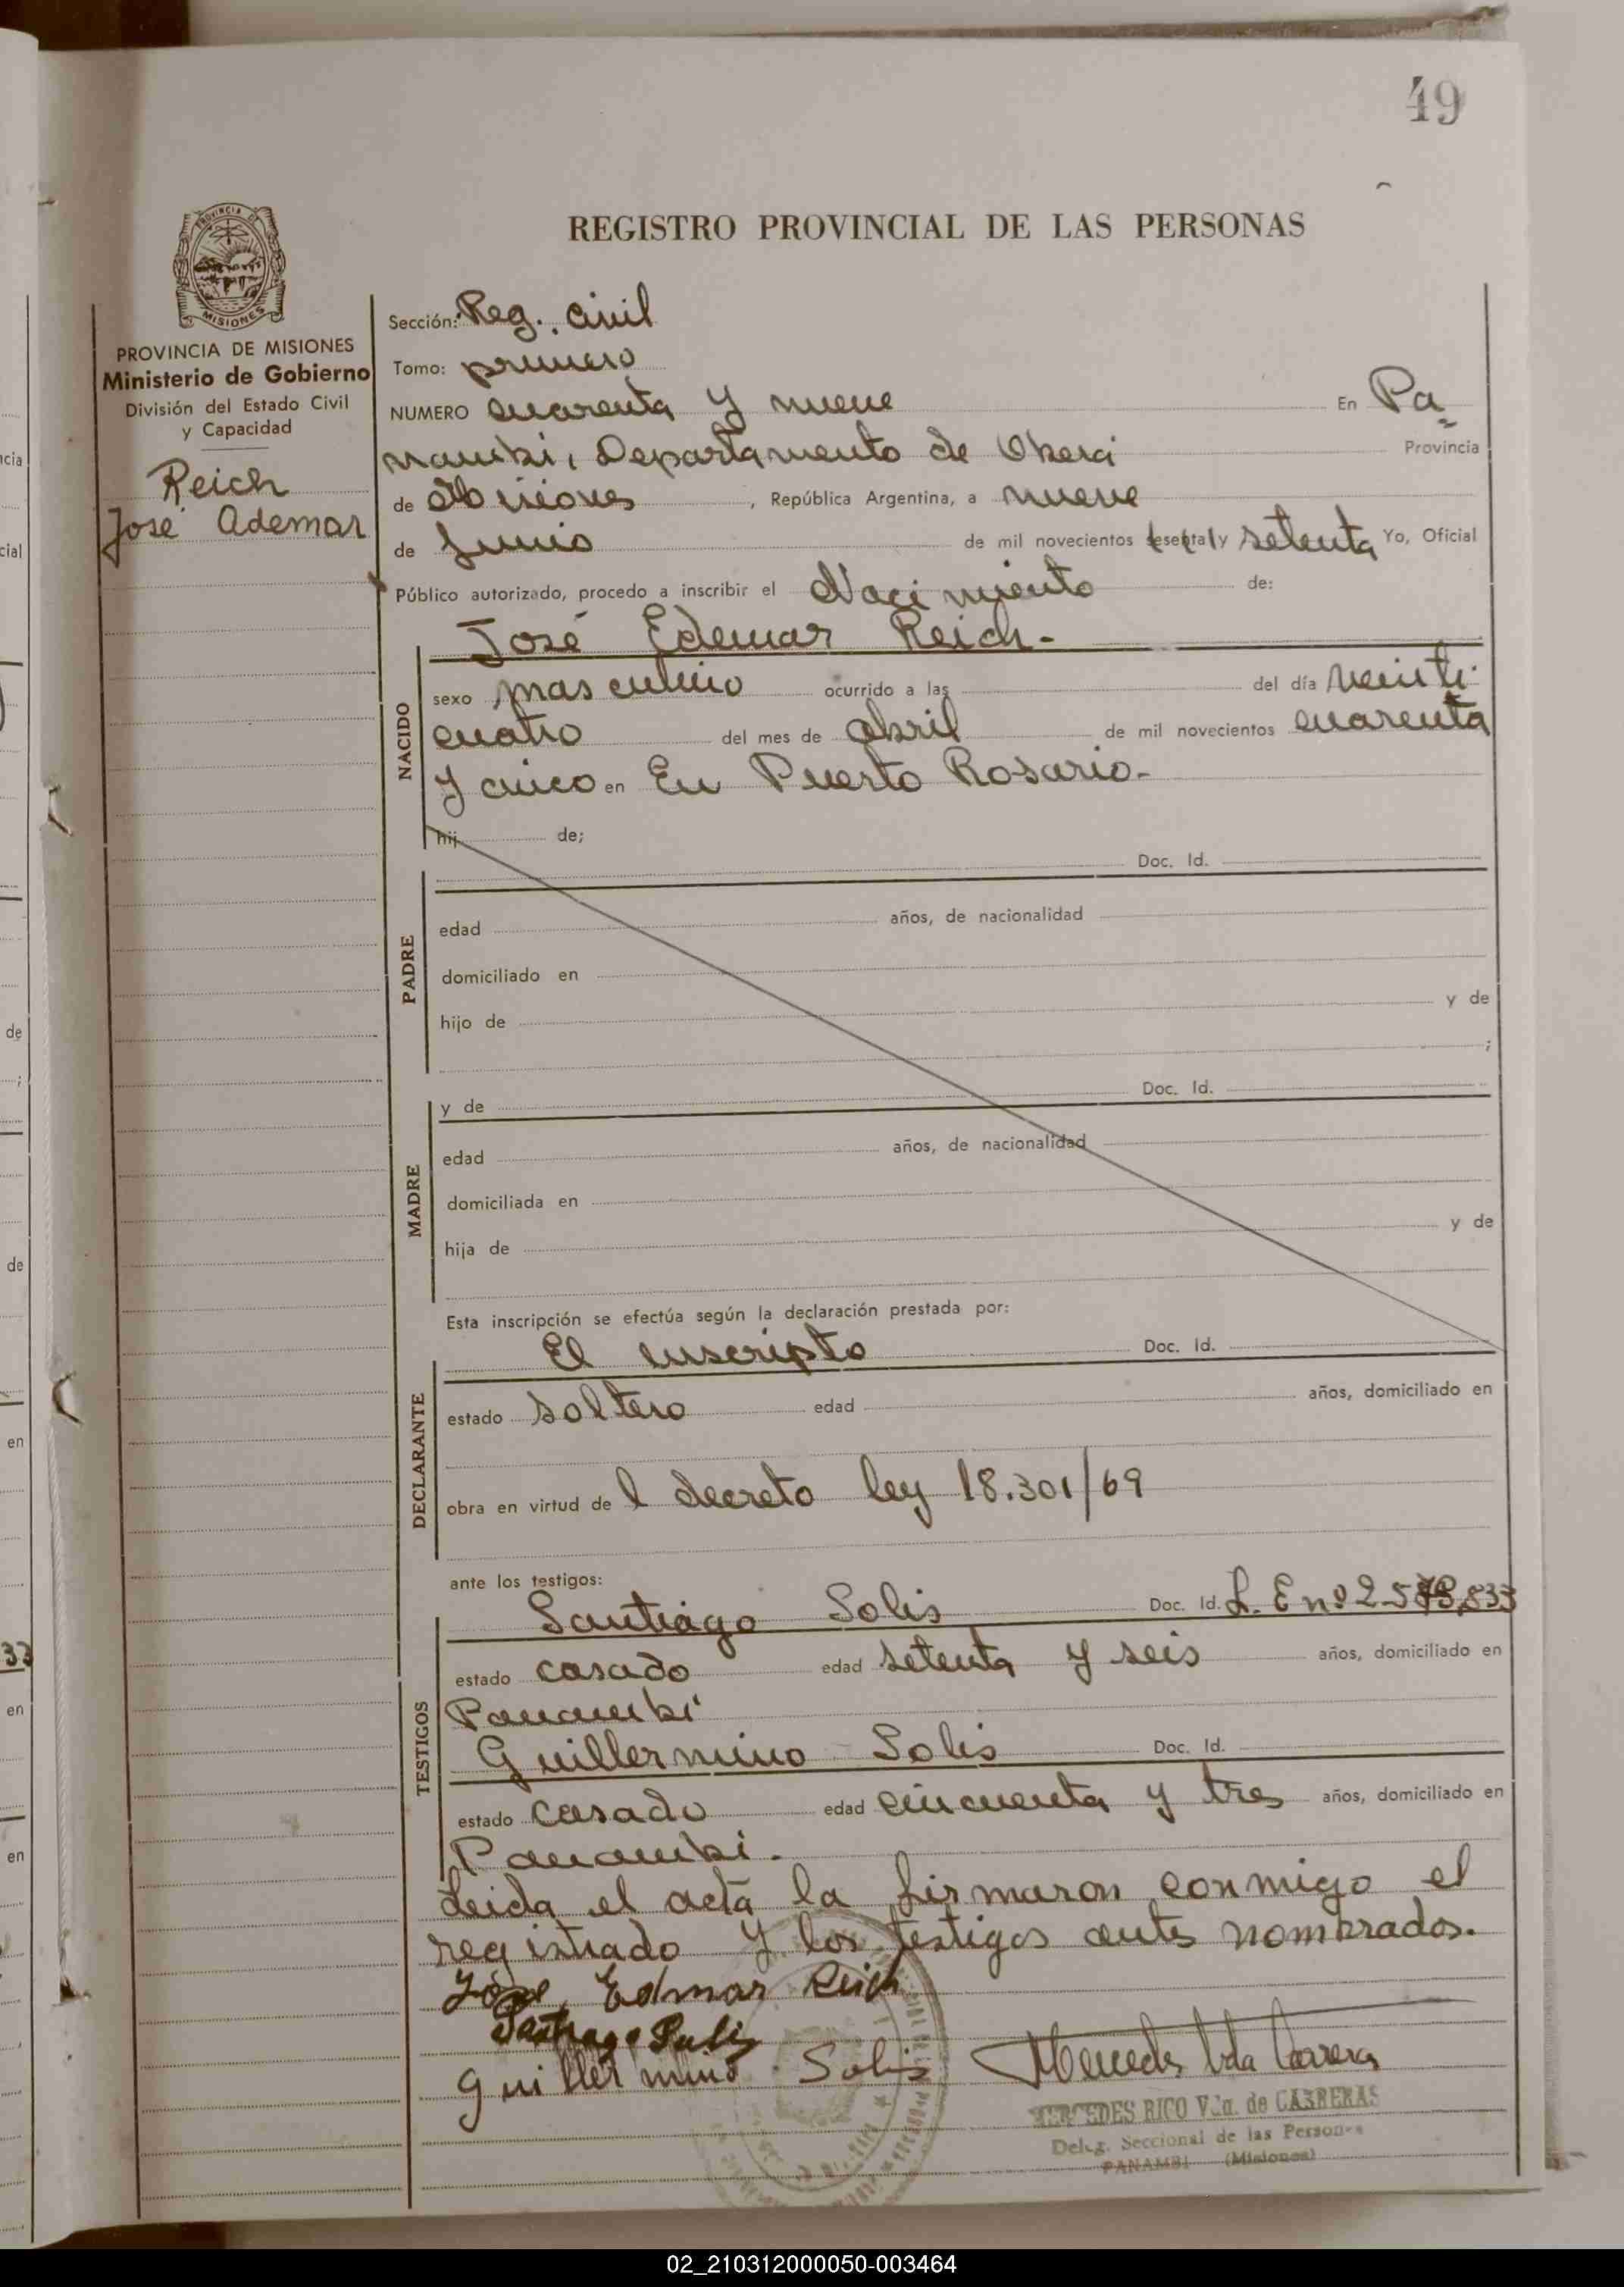 49
REGISTRO PROVINCIAL DE LAS PERSONAS
PROVINCIA DE MISIONES
PROVINCIA DE MISIONES
Ministerio de Gobierno
División del Estado Civil
y Capacidad
Reich
José Ademar
Sección: Reg. Civil
Tomo: primero
NUMERO cuarenta y nueve En Pa=
nambi, Departamento de Oberá Provincia
de Misiones, República Argentina, a nueve
de Junio de mil novecientos sesenta y setenta Yo, Oficial
Público autorizado, procedo a inscribir el Nacimiento de:
José Edemar Reich.-
NACIDO
sexo masculino ocurrido a las del día veinti-
cuatro del mes de abril de mil novecientos cuarenta
y cinco en En Puerto Rosario.-
hij de;
Doc. Id.
PADRE
edad años, de nacionalidad
domiciliado en
hijo de y de
;
y de Doc. Id.
MADRE
edad años, de nacionalidad
domiciliada en
hija de y de
Esta inscripción se efectúa según la declaración prestada por:
El inscripto Doc. Id.
DECLARANTE
estado soltero edad años, domiciliado en
obra en virtud de l decreto ley 18.301/69
ante los testigos:
Santiago Solis Doc. Id. L. E nº 2.5 .833
TESTIGOS
estado casado edad setenta y seis años, domiciliado en
Panambí
Guillermino Solis Doc. Id.
estado casado edad cincuenta y tres años, domiciliado en
Panambi.
Leida el acta la firmaron conmigo el
registrado y los testigos antes nombrados.
José Edmar Reich
Santiago Solis
Guillermino Solis Mercedes Vda Carreras
MERCEDES RICO Vda. de CARRERAS
Deleg. Seccional de las Personas
PANAMBI (Misiones)
cia
cial
de
;
de
en
33
en
en
02_210312000050-003464